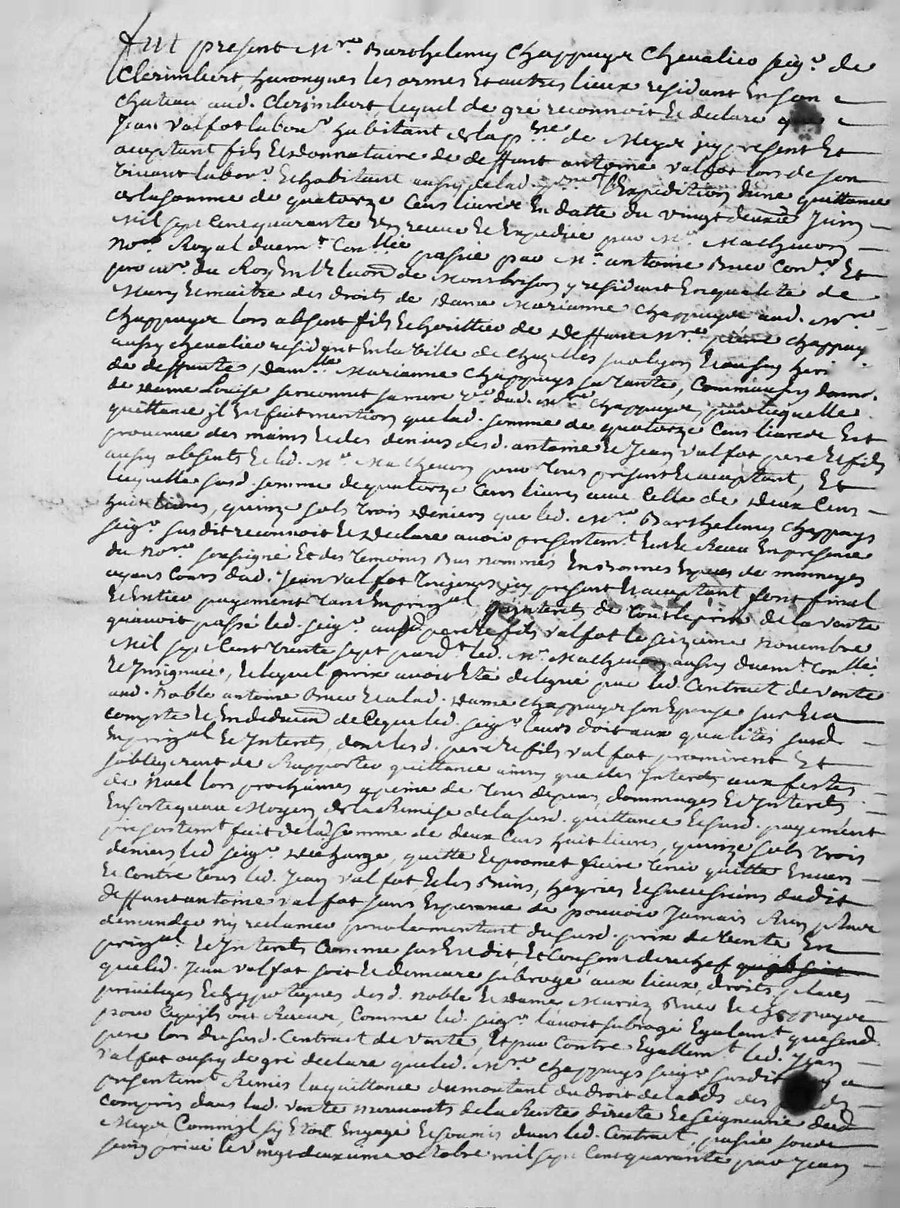 Fut present Mre Barthelemy Chappuys Chevalier seigr. de
Clerimbert, harongues les armes Et autres lieux residant En son
Chateau aud. Clerimbert, lequel de gré reconnoit Et declare que
Jean Valfat labor. habitant de la psse de Meys icy present Et
aceptant fils Et donnataire de deffunt antoine Valfat lors de son
vivant labor. Et habitant aussy de lad. l'Expedition d'une quittance
de la somme de quatorze Cens livres En datte du vingt deuxe Juin
Mil sept Cent quarante Et reçeue Et Expediée par Me. Mathevon
nore. Royal duemt. Conllé passée par Me. antoine Bruc Conr. Et
procur. du Roy En de Montbrison y residant En qualité de
Mary Et maitre des droits de dame Marianne Chappuys aud. Mre
Chappuys lors absent fils Et heritier de deffunt Mre pierre Chappuys
aussy Chevalier residant En la Ville de Chazelles sur lyon Et aussy heri
de deffunte damlle Marianne Chappuys sa Tante, Comme
de dame Louise sa mere dud. Mre Chappuys par laquelle
quittance jl Est fait mention que lad. somme de quatorze Cens livres Est
provenue des mains Et des deniers desd. antoine Et Jean Valfat pere Et fils
aussy absents Et led. Me. Mathevon pour Eux present Et aceptant, Et
laquelle susd. somme de quatorze Cens livres avec Celle de deux Cens
huit livres, quinze sols trois deniers que led. Mre. Barthelemy Chappuys
seigr. susdit reconnoit Et declare avoir presentemt. Eu Et Receu En presence
du nore soussigné Et des temoins Bas nommés En bonnes Especes de monnoyes
ayant Cours dud. Jean Valfat toujours icy present Et aceptant font final
Et Entier payement tant En prinal. qu'interets de tout le prix de la vente
qu'avoit passé led. seigr. auxd. pere Et fils Valfat le seizieme novembre
Mil sept Cent trente sept pard. led. Me. Mathevon aussy duemt. Conllé
Et Insinuée, Et lequel prix avoit Eté delegué par led. Contract de vente
aud. Noble antoine Bruc Et a lad. dame Chappuys son Epouse sur Et a
compte Et En deduon de Ce que led. seigr. leurs doit aux qualités susd.
En prinal Et Interets, dont lesd. pere Et fils Valfat promirent Et
s'obligerent de Rapporter quittance ainsy que des Interets aux festes
de Noel lors prochaines a peine de tous depens, dommages Et Interets
En sorte qu'au Moyen de la Remise de la susd. quittance Et susd. payement
presentemt fait de lad. somme de deux Cens huit livres, quinze sols trois
deniers led. seigr. decharge, quitte Et promet faire tenir quitte Envers
Et Contre tous led. Jean Valfat Et les siens, heyriers Et successeurs dudit
deffunt antoine Valfat sans Esperance de pouvoir Jamais Rien plus leur
demander ny reclamer pour le montant du susd. prix de vente En
prinal. Et Interets Comme sus Est dit Et Consent derechef
que led. Jean Valfat soit Et demeure subrogé aux lieux, droits, places
privileges Et hypotheques desd. noble Et dame Mariez Bruc Et Chappuys
pour Ce qu'ils ont Receu, Comme led. seigr. l'avoit subrogé Egalemt. que sond.
pere lors du susd. Contract de vente, Et par Contre Egallemt. led. Jean
Valfat aussy de gré declare que led. Mre. Chappuys seigr. susdit luy a
presentemt. Remis la quittance du montant du droit de laods des fonds
compris dans lad. vente mouvants de la Rente directe Et seigneurie dud.
Meys Comme jl s'y Etoit Engagé Et soumis dans led. Contract, passée sous
seing privé le vingt deuxieme octobre mil sept Cent quarante par Jean